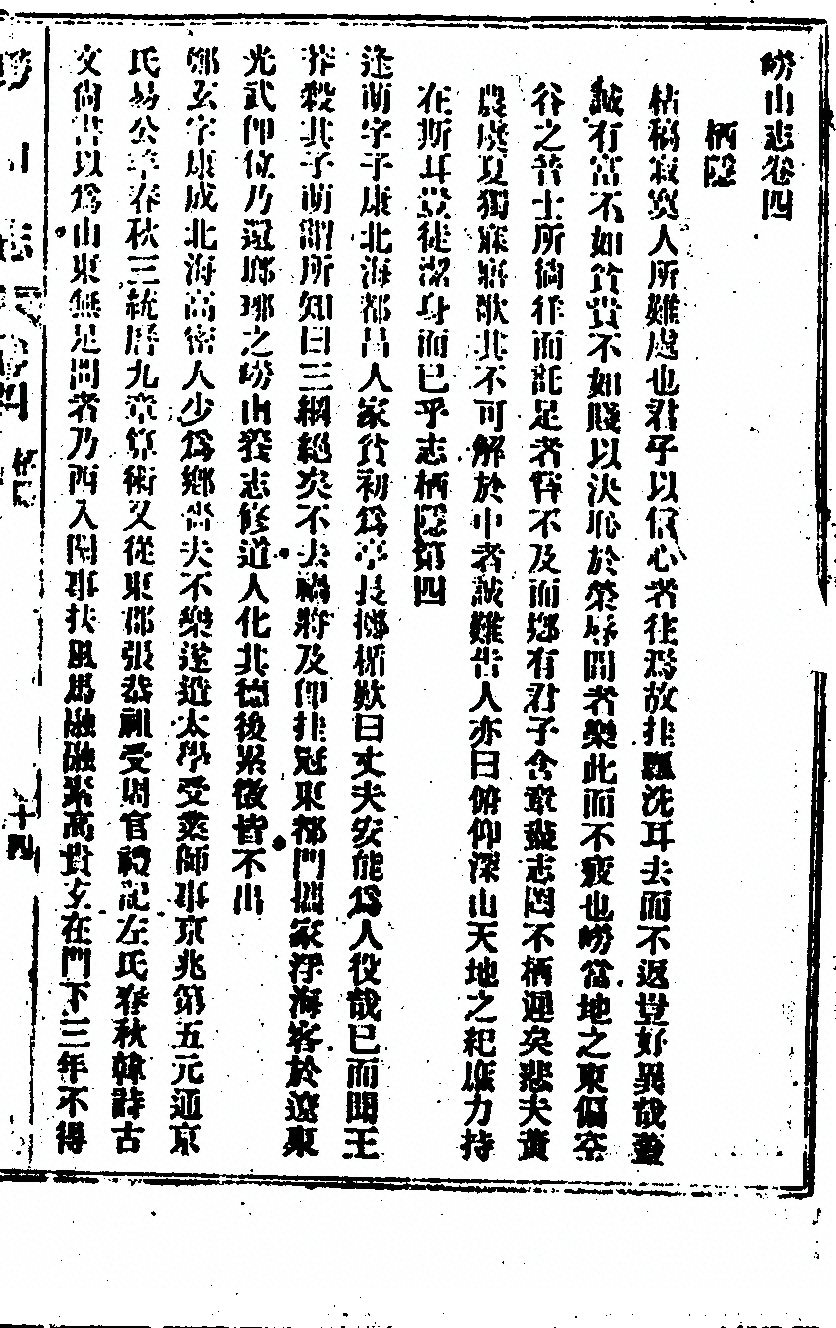 嶗山志卷四
栖隱
枯稿寂寞人所難處也君子以信心者往焉故挂瓢洗耳去而不返豈好異哉蓋
誠有富不如貧貴不如賤以決恥於榮辱間者樂此而不疲也嶗當地之東偏空
谷之昔士所徜徉而託足者詧不及而鄉有君子含章蘊志罔不栖遲矣悲夫黃
農虞夏獨寐寤歌其不可解於中者誠難告人亦曰俯仰深山天地之紀庶力持
在斯耳豈徒潔身而已乎志栖隱第四
逄萌字子康北海都昌人家貧初爲亭長擲楯歎曰丈夫安能爲人役哉已而聞王
莽殺其子萌謂所知曰三綱絕矣不去禍將及卽挂冠東都門攜家浮海客於遼東
光武卽位乃還瑯琊之嶗山養志修道人化其德後累徵皆不出
鄭玄字康成北海高密人少爲鄉嗇夫不樂遂造太學受業師事京兆第五元通京
氏易公羊春秋三統曆九章算術又從東郡張恭祖受周官禮記左氏春秋韓詩古
文尙書以爲山東無足問者乃西入關事扶風馬融融素高貴玄在門下三年不得
嶗山志 卷四 栖隱 十四